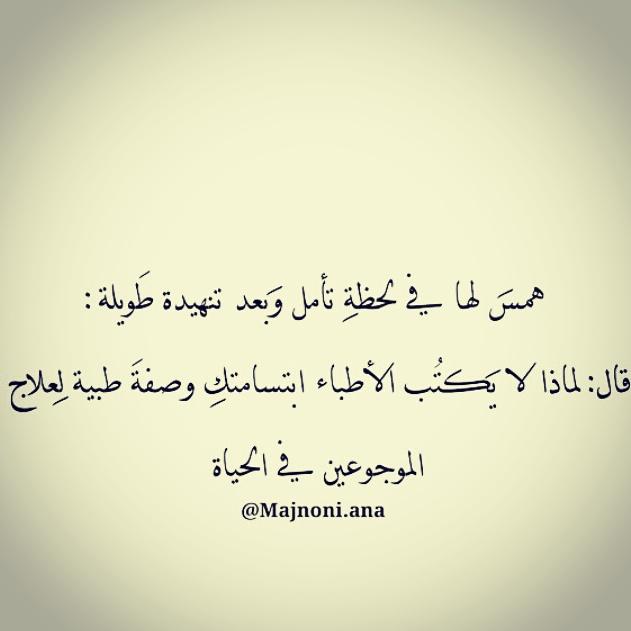 همسَ لها في لحظةِ تأمل وَبعد تنهيدة طَويلة :
قال: لماذا لا يَكتُب الأطباء ابتسامتكِ وصفةَ طبية لِعلاج
الموجوعين في الحياة
@Majnoni.ana